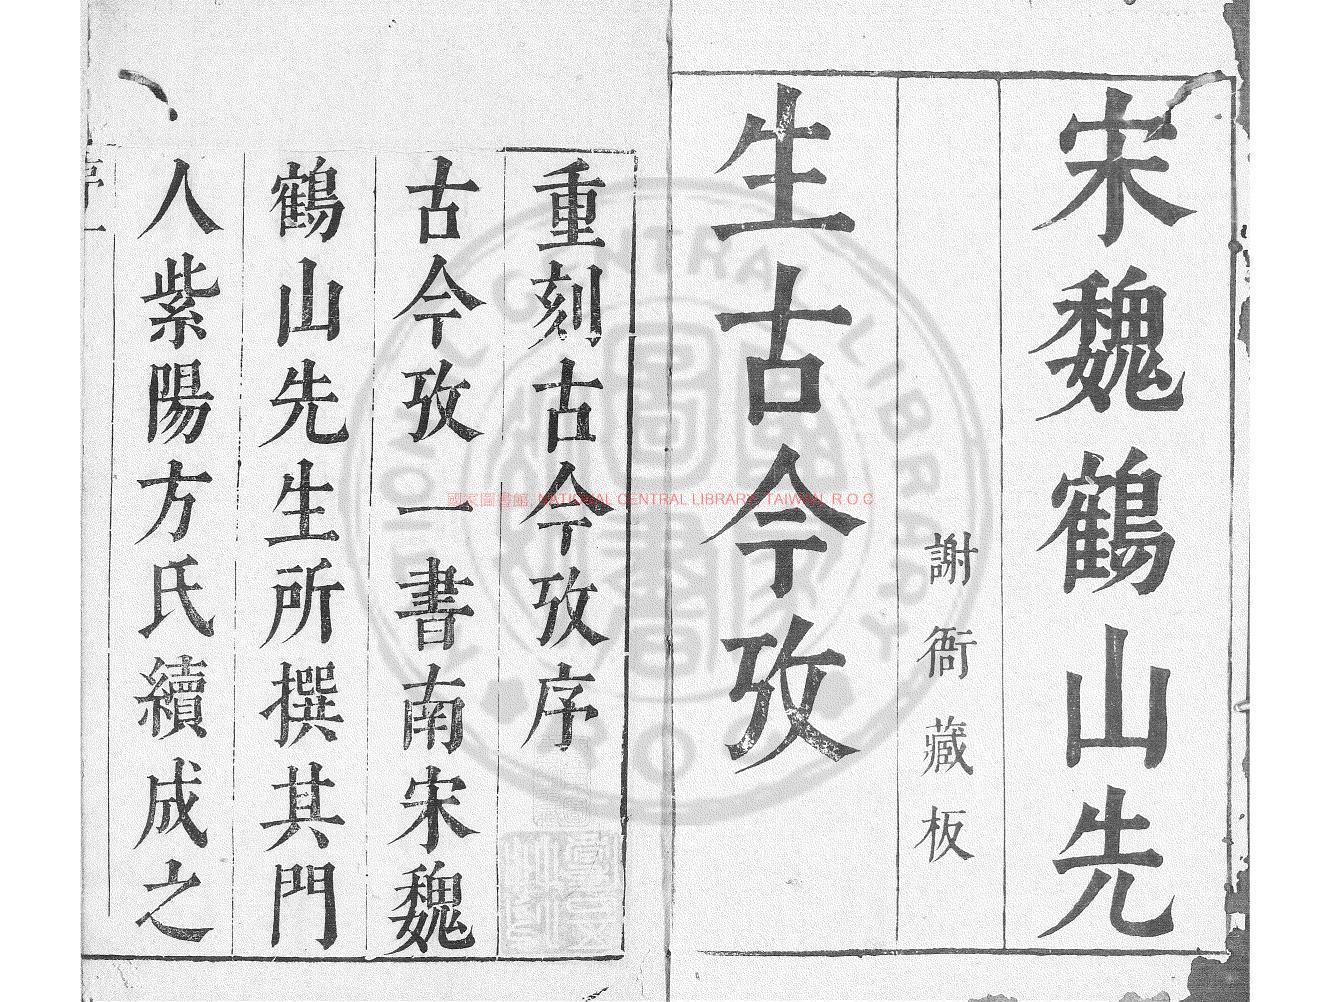 宋魏鶴山先
謝衙藏板
生古今攷
重刻古今攷序
古今攷一書南宋魏
鶴山先生所撰其門
人紫陽方氏續成之
序一
國家圖書館, NATIONAL CENTRAL LIBRARY, TAIWAN, R.O.C